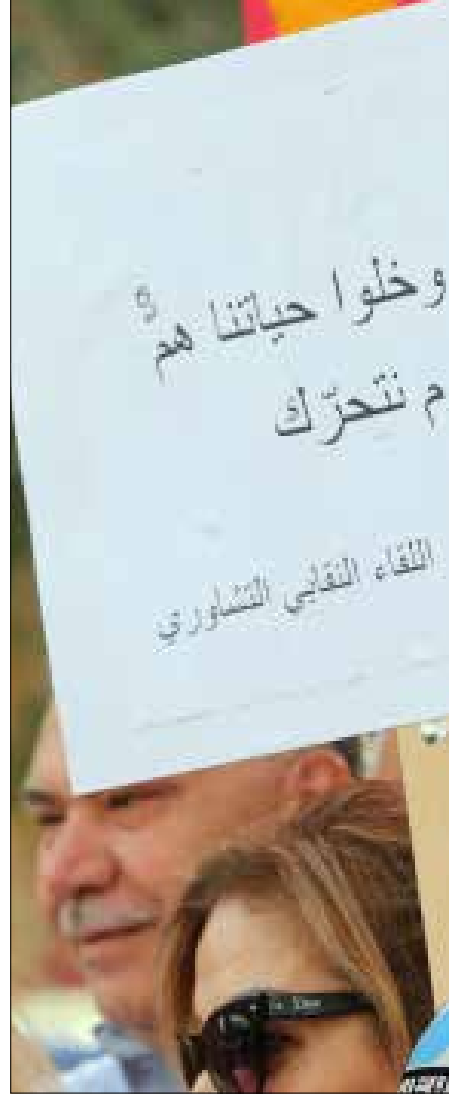 وخلوا حياتنا همّ
م نتحرّك
اللقاء النقابي التشاوري